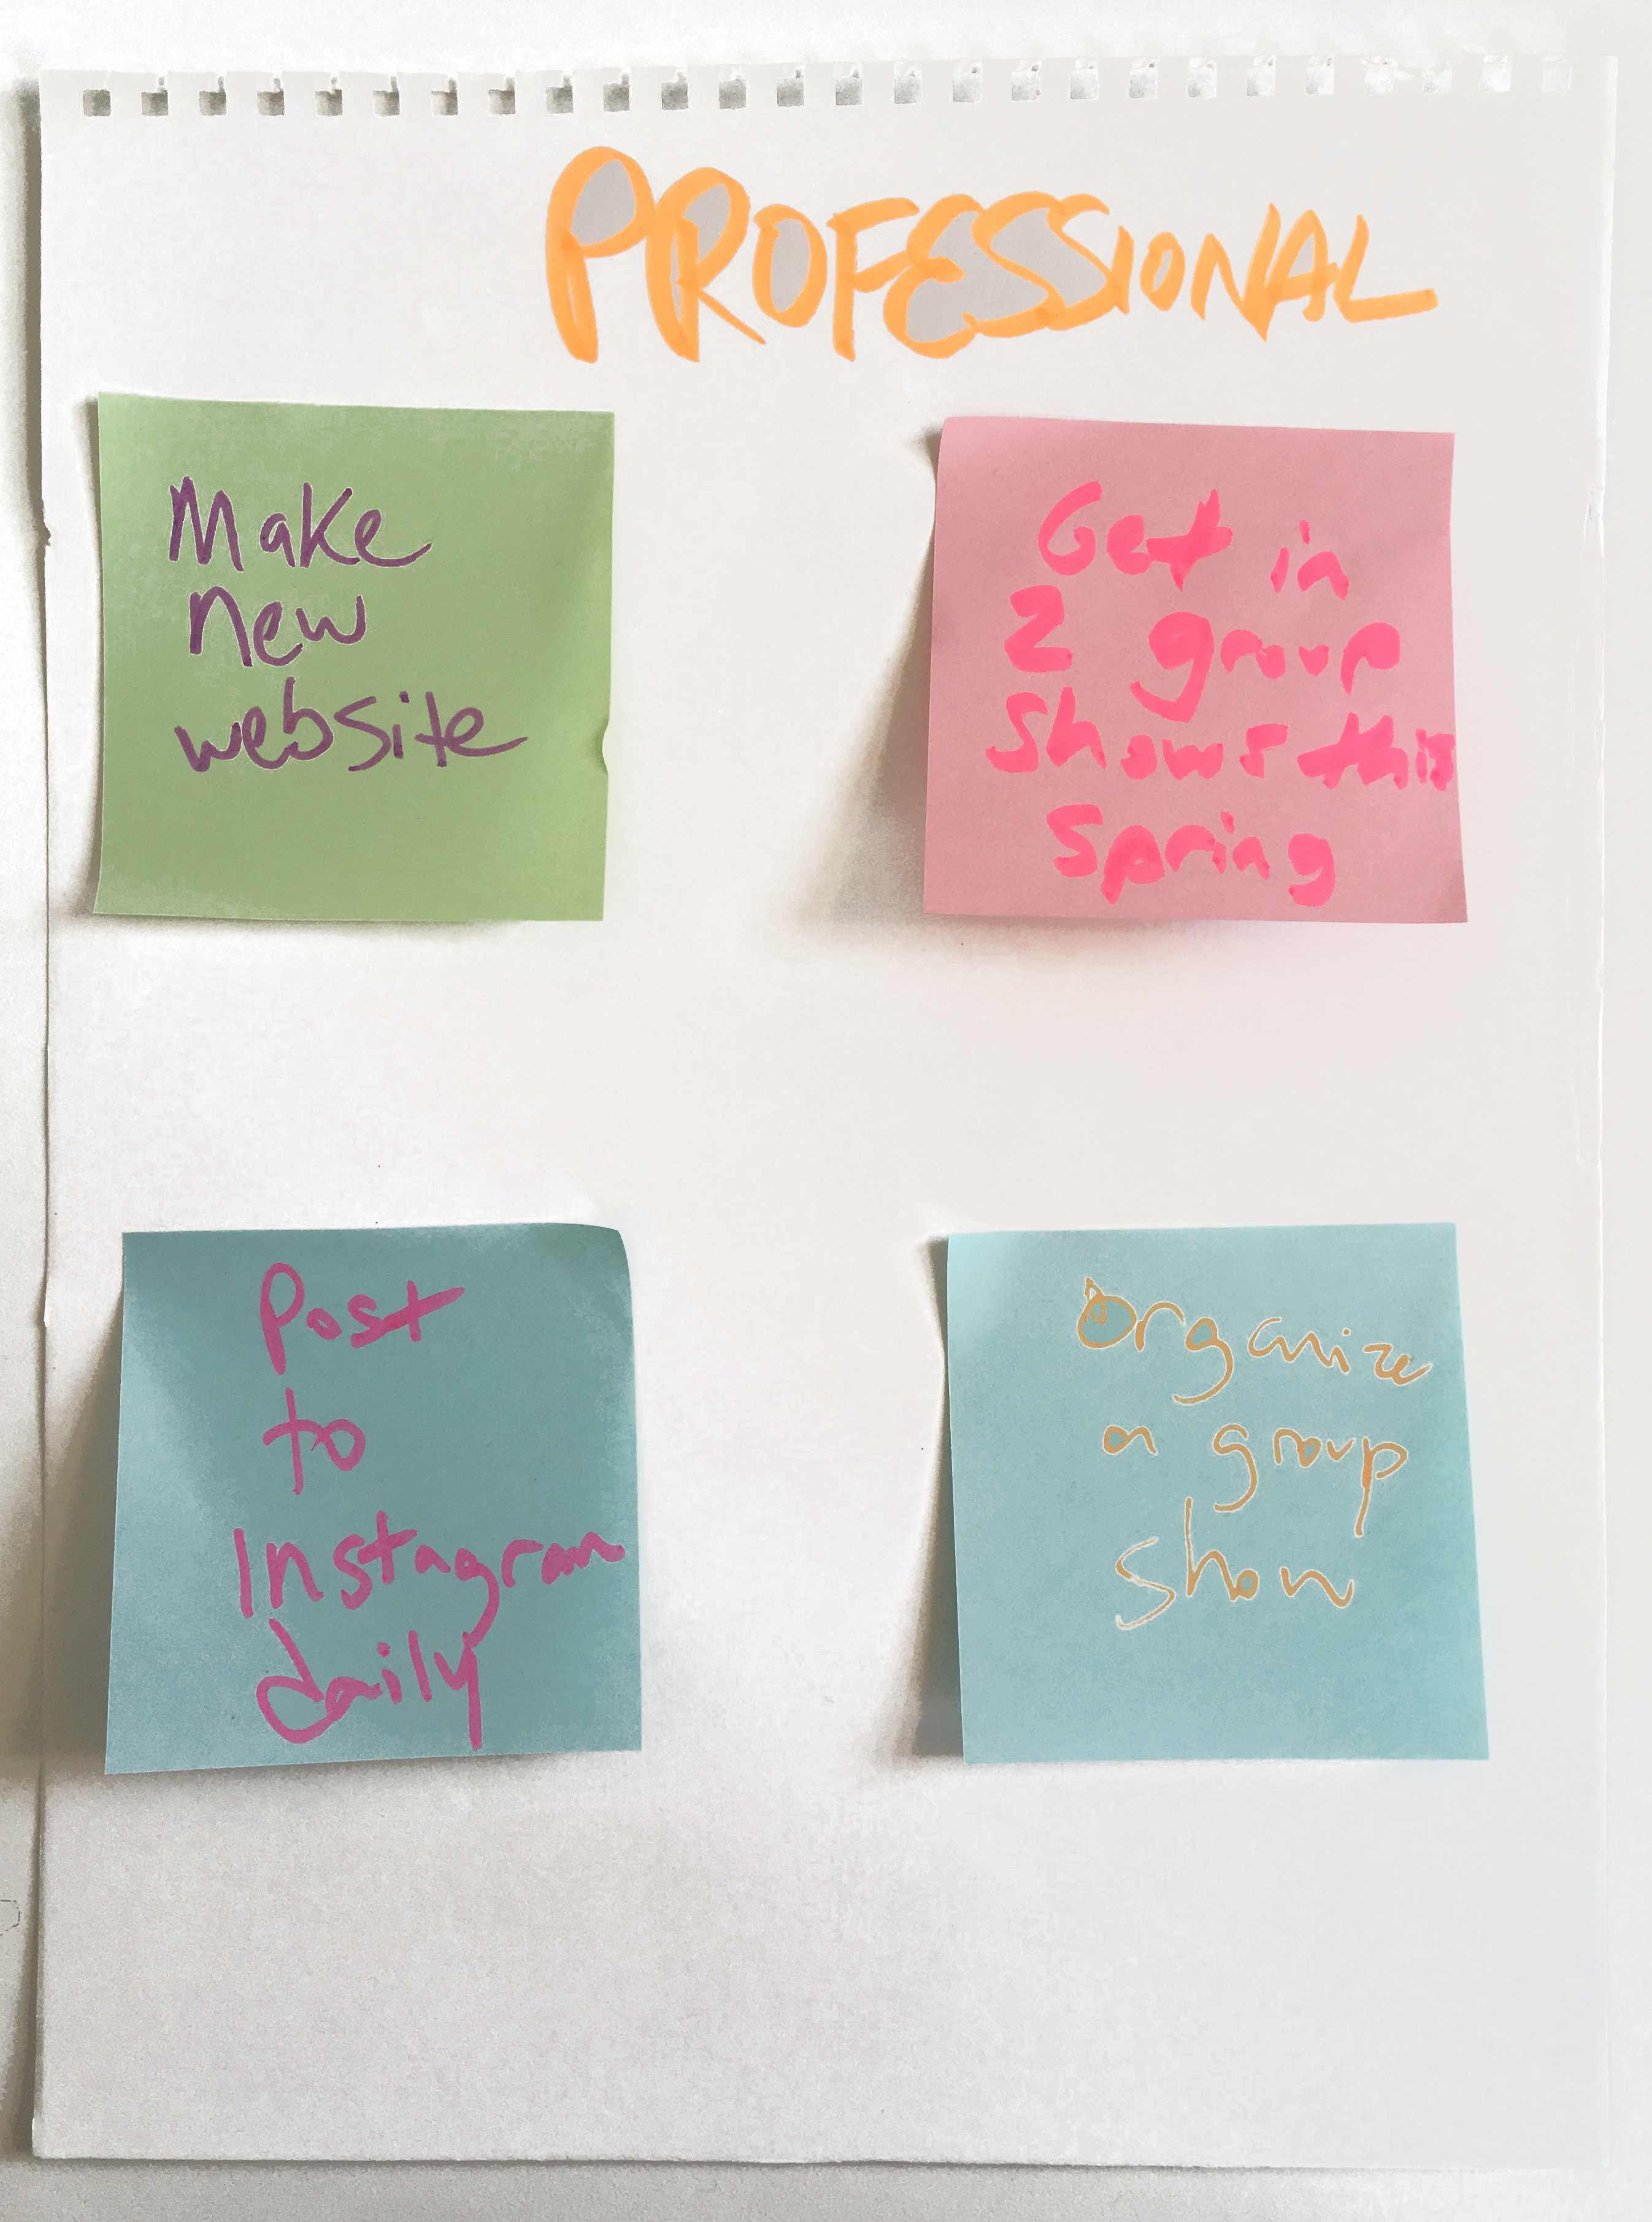 PROFESSIONAL
Make
new
website
Get in
2 group
shows this
Spring
Post
to
Instagram
daily
Organize
a group
show